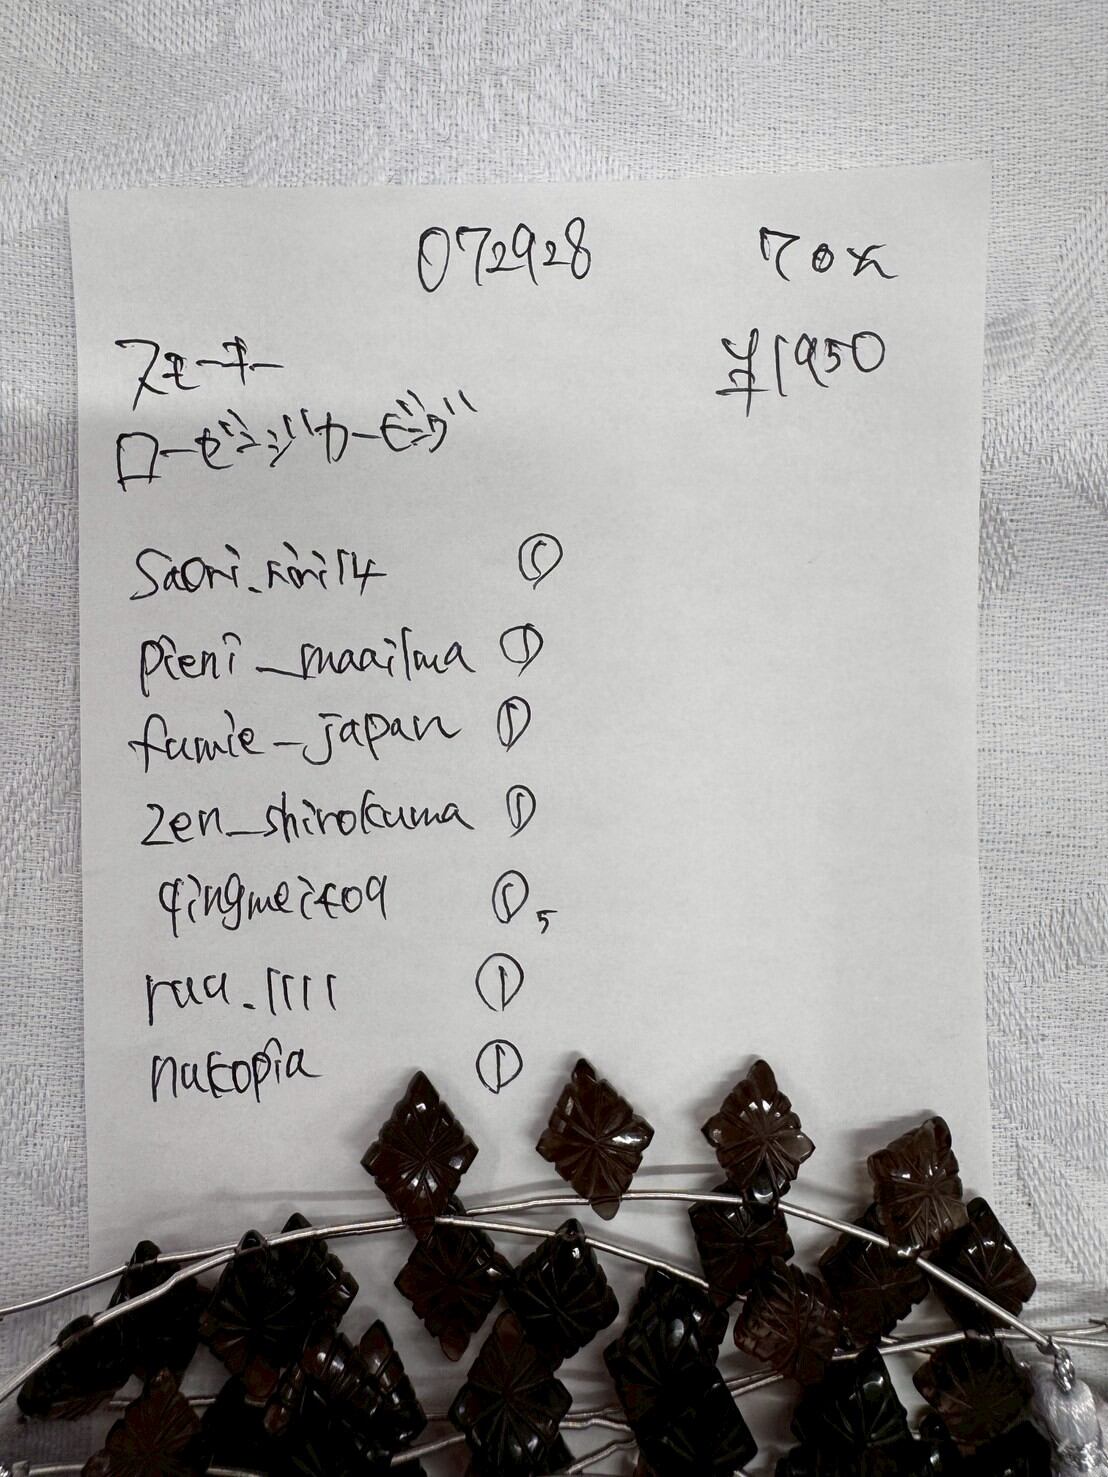 072928 70%
スモーキー
¥1950
ローゼンジカービング
saori.riri14 ①
pieni_maailma ①
fumie_japan ①
zen_shirokuma ①
qingmeit09 ① 5
raa.1111 ①
nakopia ①